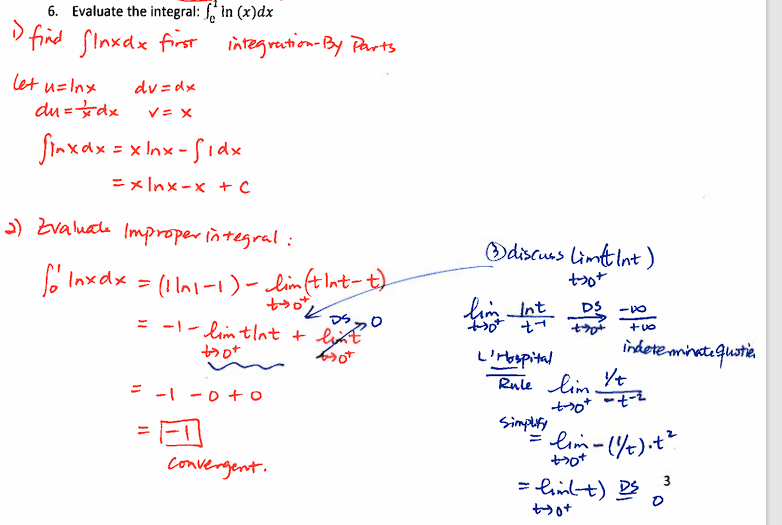 6. Evaluate the integral: ∫₀¹ ln (x)dx
1) find ∫lnxdx first integration-By Parts
let u=lnx dv=dx
du=1/x dx v=x
∫lnxdx = x lnx - ∫1dx
= x lnx - x + C
2) Evaluate Improper integral:
∫₀¹ lnxdx = (1 ln1 - 1) - lim t→0⁺ (t lnt - t)
= -1 - lim t→0⁺ t lnt + lim t→0⁺ t DS 0
= -1 - 0 + 0
= -1
convergent.
③ discuss lim t→0⁺ (t lnt)
lim t→0⁺ lnt/t⁻¹ DS t→0⁺ -∞/+∞
indeterminate quotient
L'Hospital Rule lim t→0⁺ (1/t)/(-t⁻²)
simplify = lim t→0⁺ -(1/t)·t²
= lim t→0⁺ (-t) DS 0
3